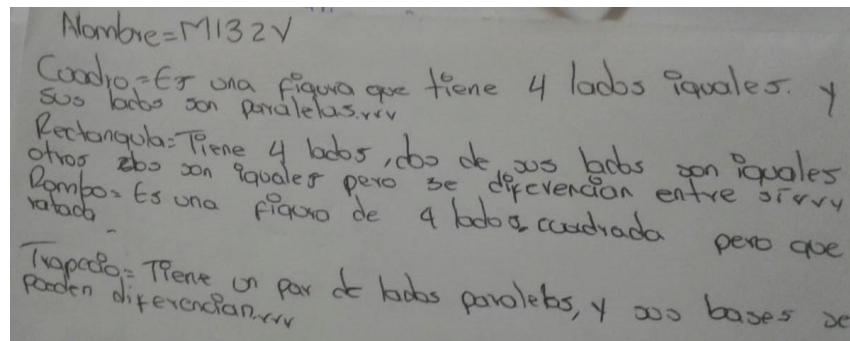 Nombre=M132V
Coadro=Es una figura que tiene 4 lados iguales. y
sus lados son paralelas.rrr
Rectangula=Tiene 4 lados, dos de sus lados son iguales
otros 2dos son iguales pero se diferencian entre si rrry
Rombo= Es una figura de 4 lados, cuadrada pero que
ratada
Trapecio= Tiene un par de lados paralelas, y sus bases se
pueden diferencian.rrr